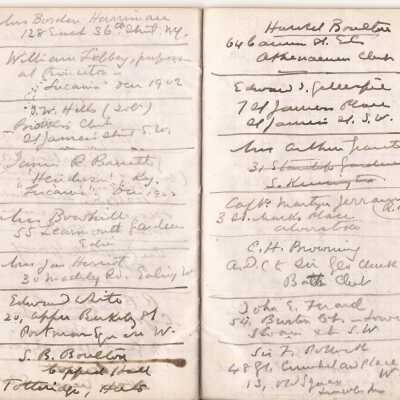 Mrs Borden Harriman
128 East 36th Street N.Y.
William Libbey, professor
at Princeton
"Lucania" Dec 1902
J.W. Hills (Sol.)
Brooks's Club
St James Street S.W.
James R Barrett
"Henderson" Ky.
"Lucania" Dec
Mrs
55 Learmouth Gardens
Edin
Mrs Jas Herriot
30 Madeley Rd. Ealing W
Edward White
20, Upper Berkeley St
Portman Square W.
S. B. Boulton
Copped Hall
Totteridge, Herts
Harold Boulton
64 Cannon St. E.C.
Athenaeum Club
Edward S. Gillespie
7 St James Place
St James St. S.W.
Mrs Arthur
31 Gardens
S. Kensington
Capt. Martyn
3 St. Marks Place
C. H. Browning
A.D.C to Sir Geo
Bath Club
John E.
54, Burton Ct. Lower
Sloane St S.W
Sir F. Pollock
48 Gt Cumberland Place
W
13, Old Square
Lincolns Inn